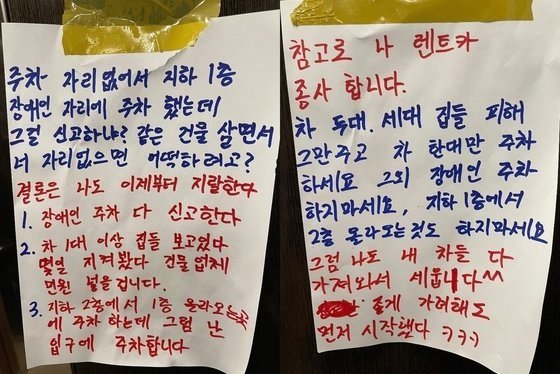 주차 자리 없어서 지하 1층
장애인 자리에 주차 했는데
그걸 신고하냐? 같은 건물 살면서
너 자리 없으면 어떡하려고?
결론은 나도 이제부터 지랄한다
1. 장애인 주차 다 신고한다
2. 차 1대 이상 집들 보고있다
몇일 지켜봤다 건물 업체
민원 넣을겁니다.
3. 지하 2층에서 1층 올라오는곳
에 주차 하는데 그럼 난
입구에 주차합니다
참고로 나 렌트카
종사 합니다.
차 두대. 세대 집들 피해
그만주고 차 한대만 주차
하세요 그외 장애인 주차
하지마세요, 지하 1층에서
2층 올라오는것도 하지마세요
그럼 나도 내 차들 다
가져와서 세웁니다^^
좋게 가려해도
먼저 시작했다 ㅋㅋㅋ